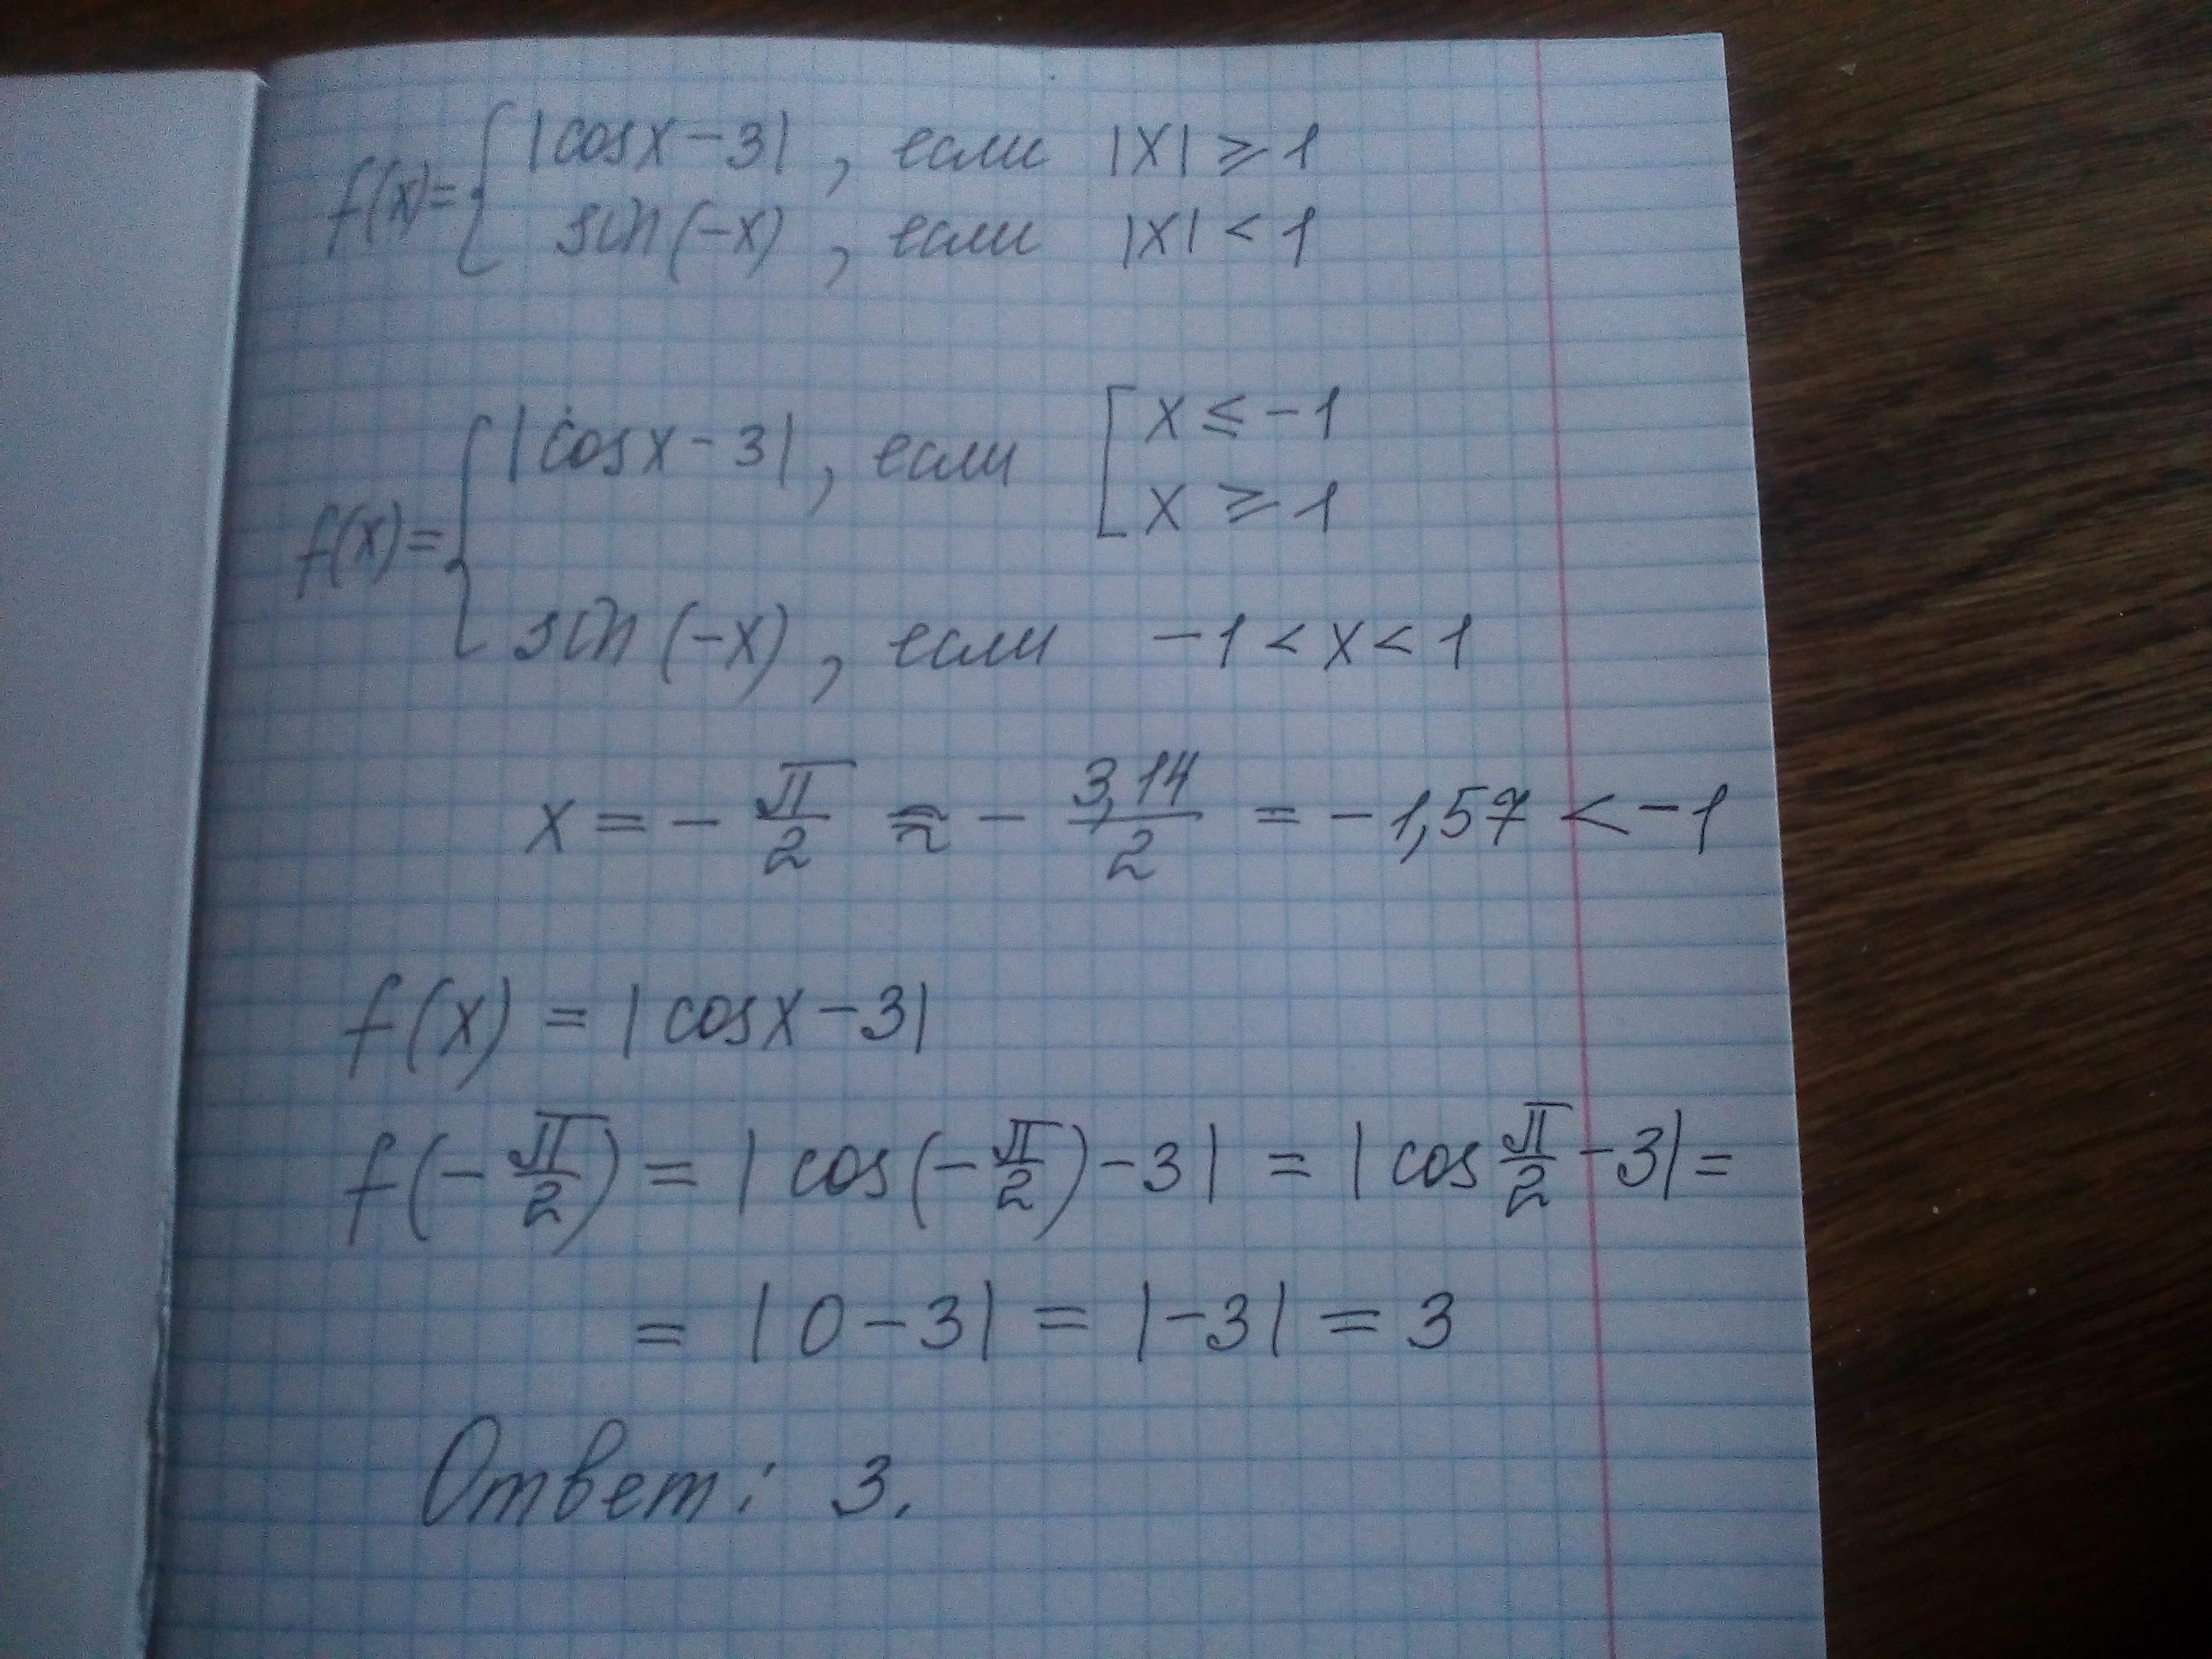 f(x)= { |cosx-3|, если |x| ⩾ 1
sin(-x), если |x| < 1
f(x)= { |cosx-3|, если [ x ⩽ -1
x ⩾ 1
sin(-x), если -1 < x < 1
x = - π/2 ≈ - 3,14/2 = -1,57 < -1
f(x) = |cosx-3|
f(- π/2) = |cos(- π/2) -3| = |cos π/2 -3| =
= |0-3| = |-3| = 3
Ответ: 3.